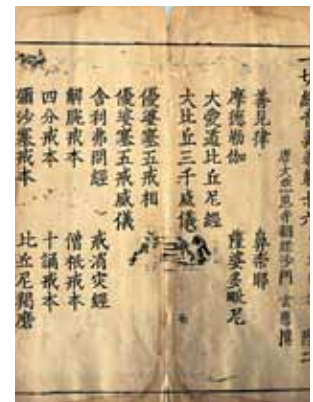 一切經音義卷第十六
唐大慈恩寺翻經沙門 玄應撰
善見律 鼻柰耶
摩德勒伽 薩婆多毗尼
大愛道比丘尼經
大比丘三千威儀
優婆塞五戒相
優婆塞五戒威儀
舍利弗問經 戒消災經
解脫戒本 僧祇戒本
四分戒本 十誦戒本
彌沙塞戒本 比丘尼羯磨